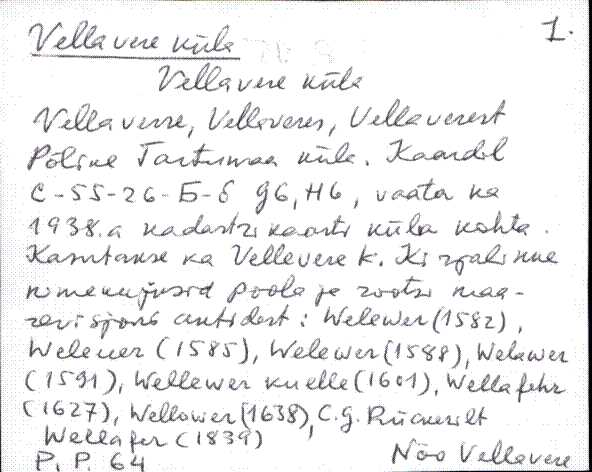 Vellavere küla 1.
Vellavere küla
Vellaverre, Vellaveres, Vellaverest
Põline Tartumaa küla. Kaardil
C-55-26-Б-б g6, H6, vaata ka
1938.a kadastri kaarti küla kohta.
Kasutanse ka Vellevere k. Kirjaline
nimekujusid poola ja rootsi maa-
revisjoni antidest: Welewer (1582),
Weleuer (1585), Welewer (1588), Welawer
(1591), Wellewer kuelle (1601), Wellafehr
(1627), Wellower (1638), C.G. Rückerilt
Wellafer (1839)
P. P. 64 Nõo Vellavere